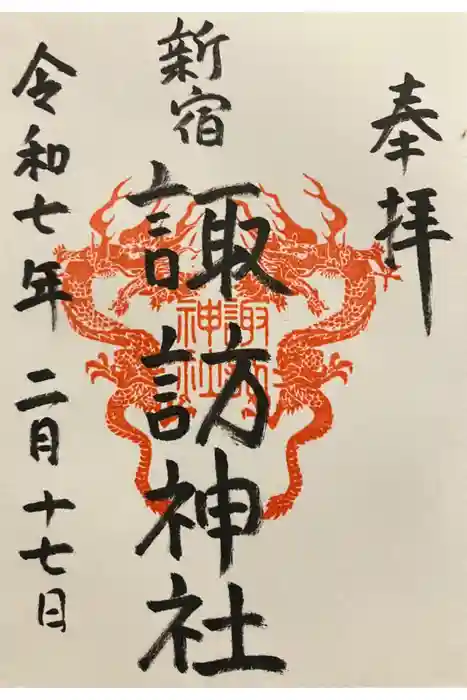 奉拝
新宿
諏訪神社
諏訪
神社
令和七年 二月十七日